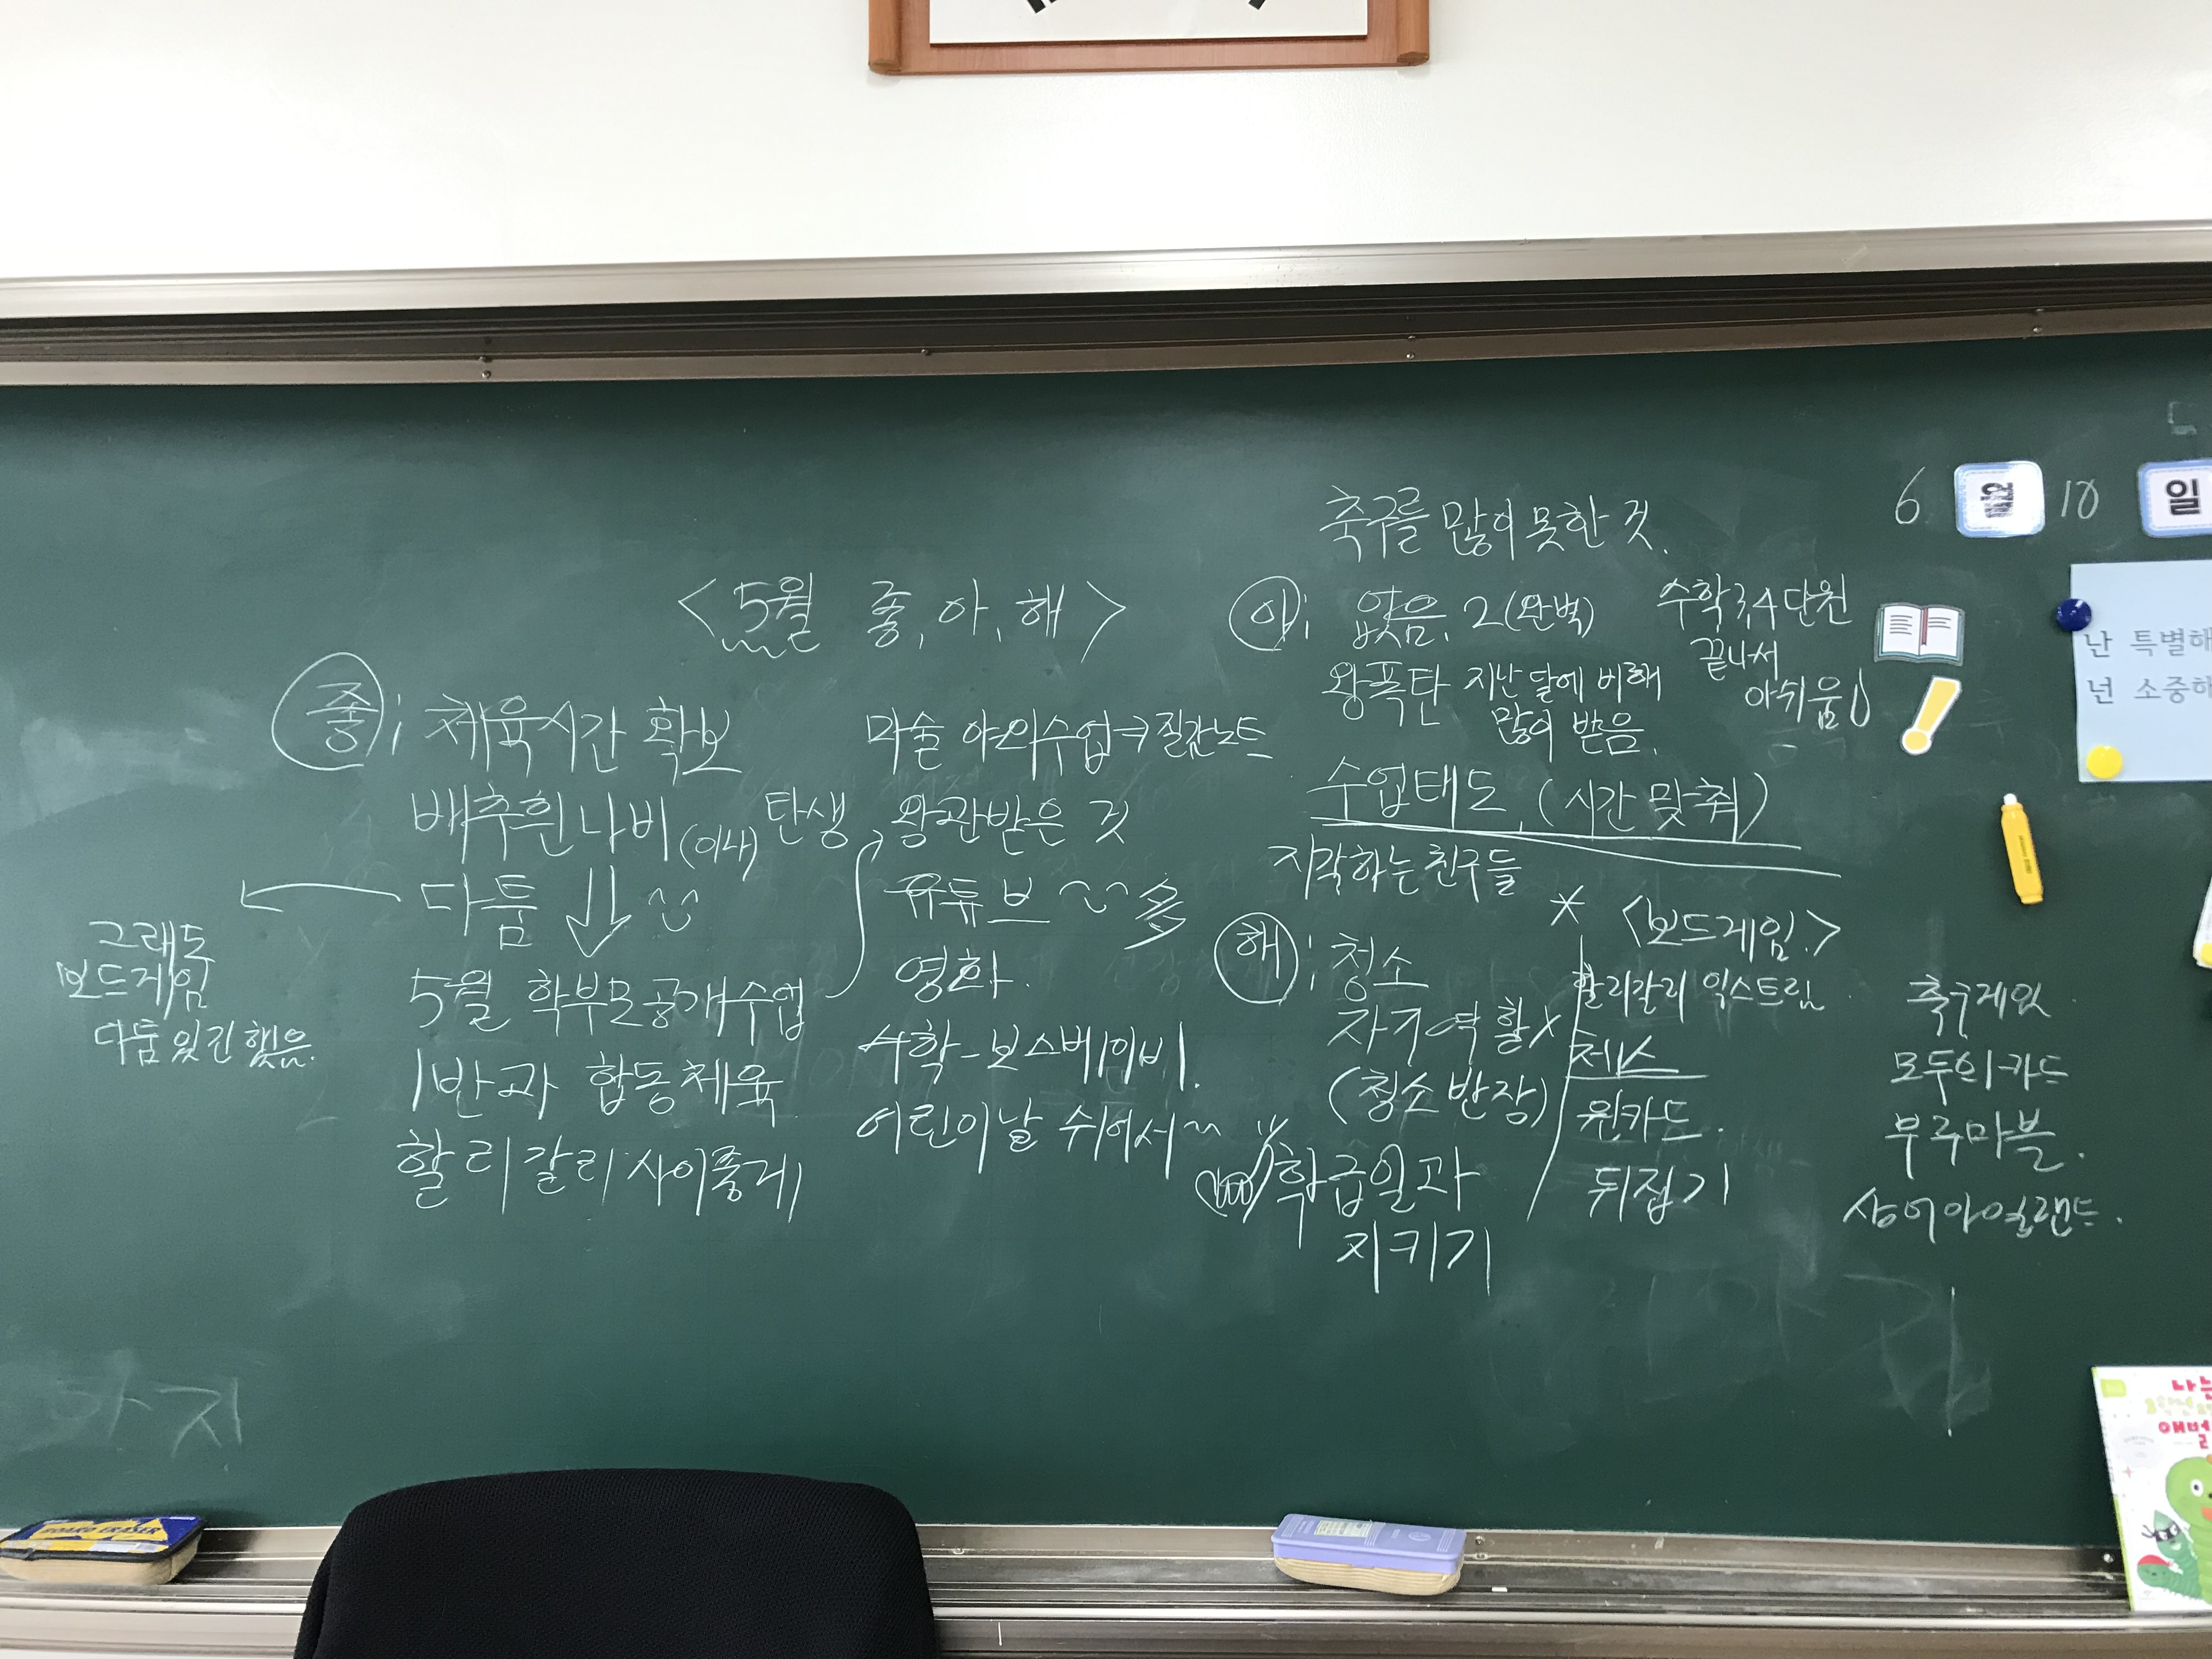 <5월 좋, 아, 해>
좋; 체육시간 확보
배추흰나비 (이나) 탄생
다툼 ↓
그래도
보드게임
다툼 있긴 했음.
5월 학부모공개수업
1반과 합동체육
할리갈리 사이좋게
미술 야외수업 → 질감노트
왕관받은 것
유튜브 多
영화.
수학-보스베이비.
어린이날 쉬어서~
축구를 많이 못한 것.
아; 없음. 2(완벽)
왕폭탄 지난 달에 비해
많이 받음.
수학3,4단원
끝나서
아쉬움
수업태도. (시간 맞춰)
지각하는 친구들
해; 청소
자기역할X
(청소반장)
학급일과
지키기
* <보드게임.>
할리갈리 익스트림.
체스
원카드.
뒤집기
축구게임
모두의카드
부루마블.
상어아일랜드.
6 월 10 일
난 특별해
넌 소중해
BOARD ERASER
나는
애벌